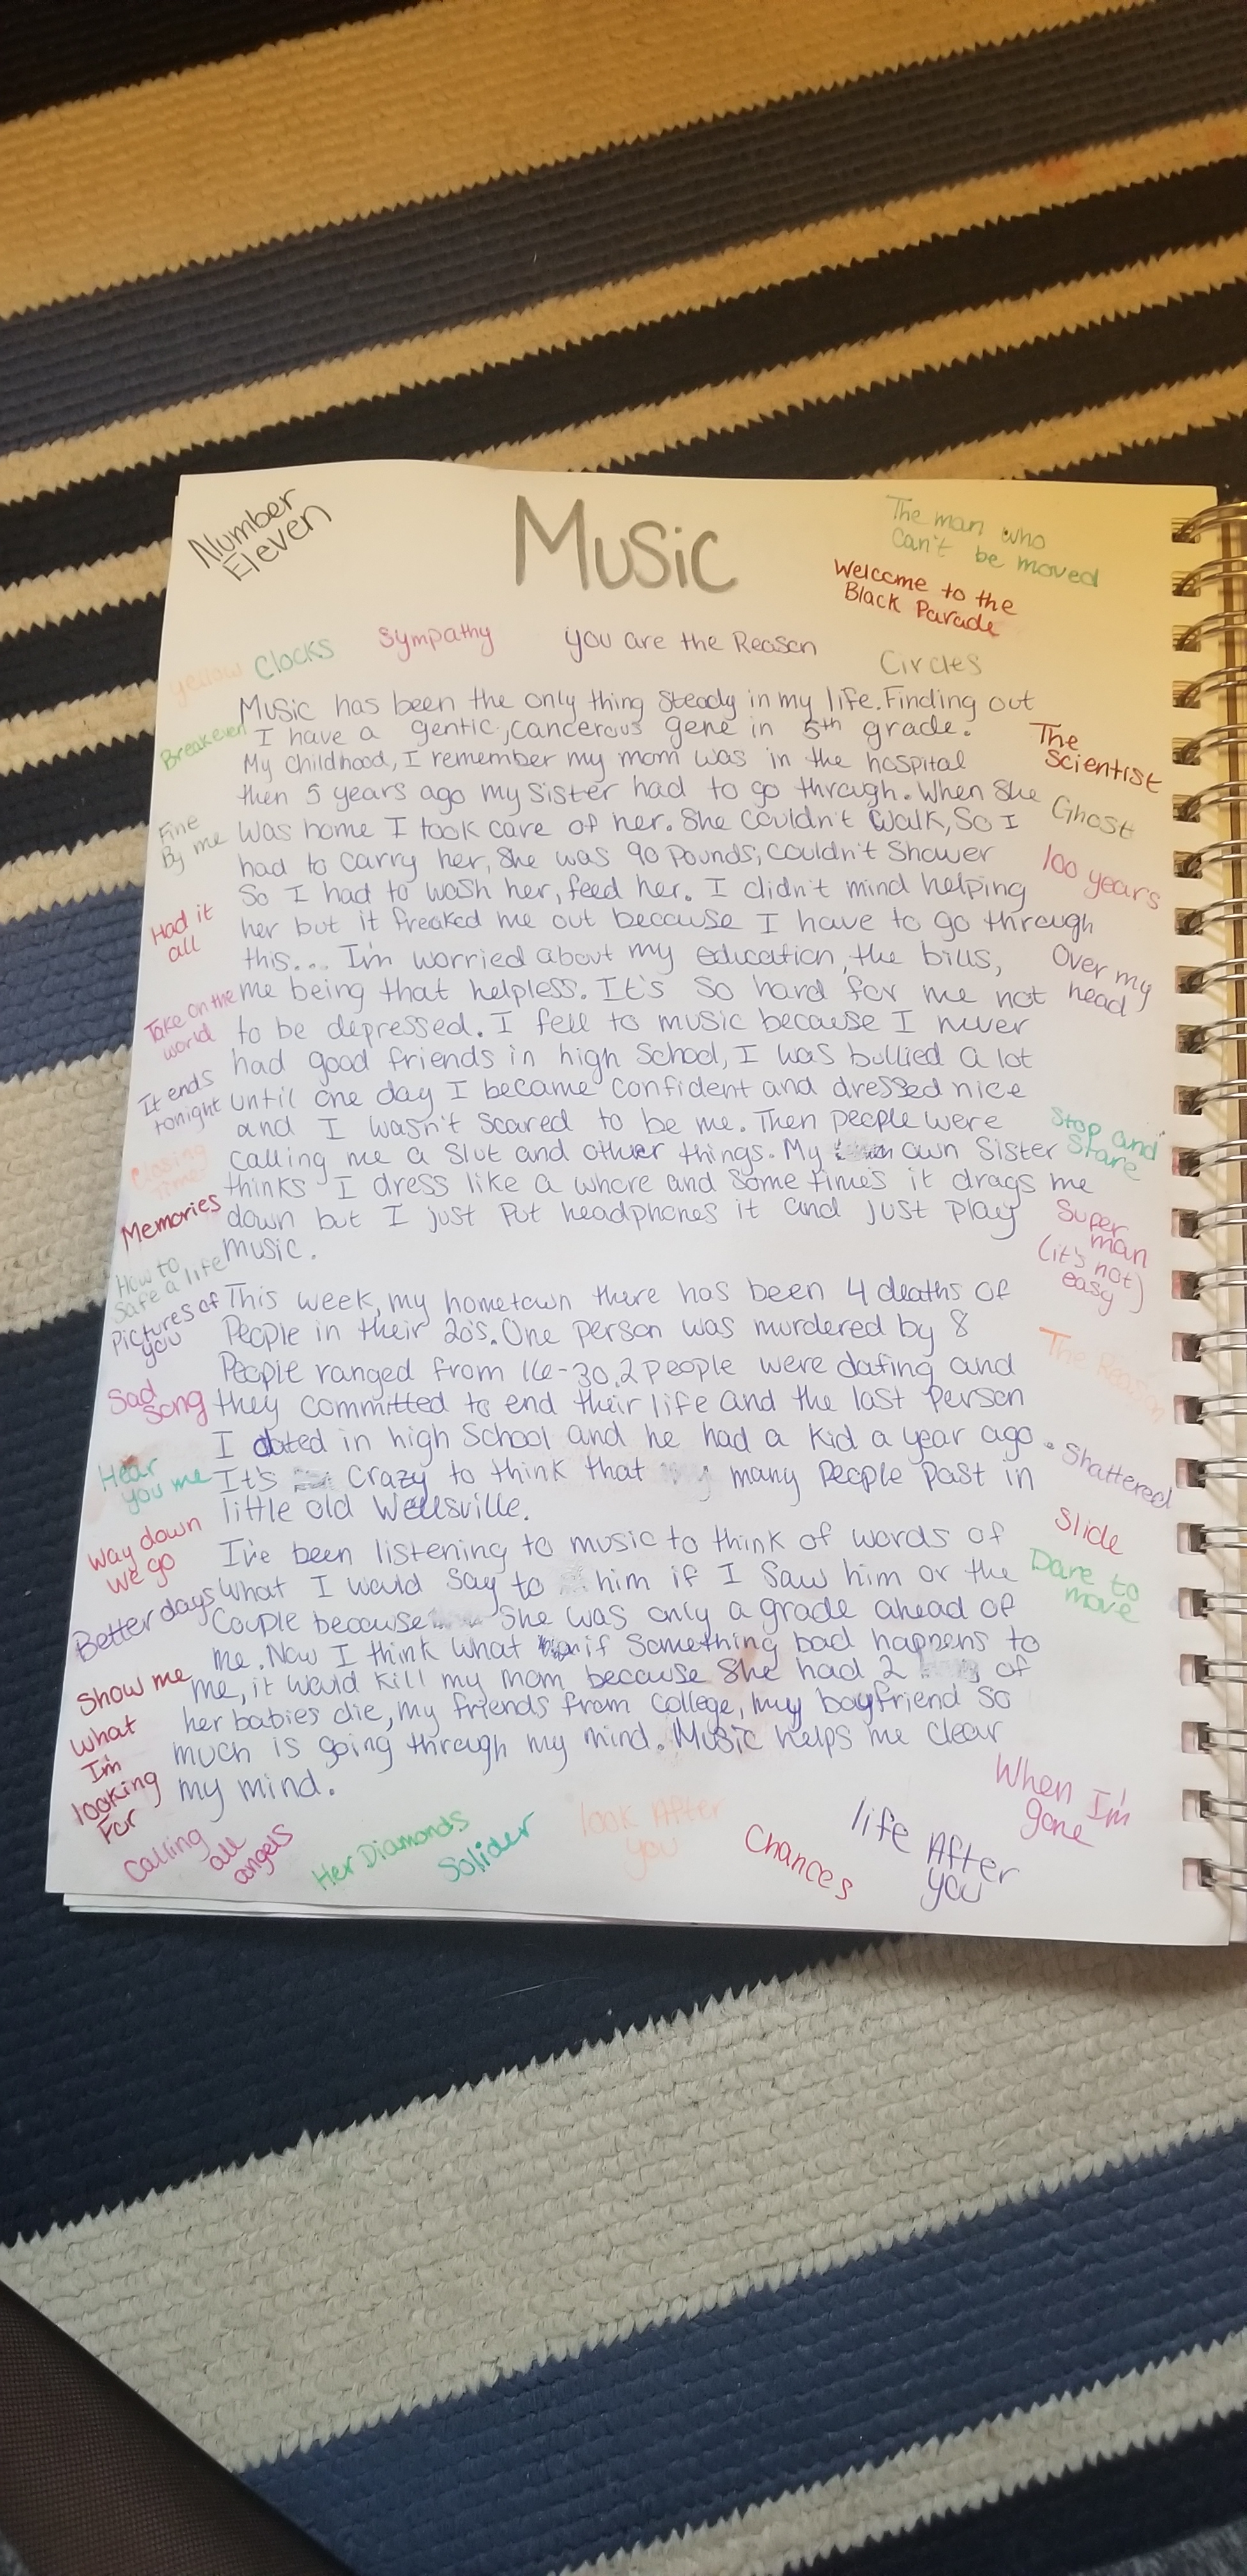 Number
Eleven
Music
The man who
can't be moved
Welcome to the
Black Parade
yellow
Clocks
Sympathy
you are the Reason
Circles
Music has been the only thing steady in my life. Finding out
I have a gentic, cancerous gene in 5th grade.
My childhood, I remember my mom was in the hospital
then 5 years ago my sister had to go through. When she
was home I took care of her. She couldn't walk, So I
had to carry her, she was 90 pounds, couldn't shower
So I had to wash her, feed her. I didn't mind helping
her but it freaked me out because I have to go through
this... I'm worried about my education, the bills,
me being that helpless. It's so hard for me not
to be depressed. I fell to music because I never
had good friends in high School, I was bullied a lot
until one day I became confident and dressed nice
and I wasn't scared to be me. Then people were
calling me a slut and other things. My own sister
thinks I dress like a whore and some times it drags me
down but I just put headphones it and just play
music.
This week, my hometown there has been 4 deaths of
People in their 20's. One person was murdered by 8
People ranged from 16-30. 2 people were dating and
they committed to end their life and the last person
I dated in high School and he had a kid a year ago.
It's crazy to think that many people past in
little old Wellsville.
I've been listening to music to think of words of
what I would say to him if I saw him or the
Couple because she was only a grade ahead of
me. Now I think what if something bad happens to
me, it would kill my mom because she had 2 of
her babies die, my friends from college, my boyfriend so
much is going through my mind. Music helps me clear
my mind.
Breakeven
Fine
By me
Had it
all
Take on the
world
It ends
tonight
Closing
Time
Memories
How to
Safe a life
Pictures of
you
Sad
Song
Hear
you me
Way down
we go
Better days
Show me
what
I'm
looking
For
The
Scientist
Ghost
100 years
Over my
head
Stop and
Stare
Super
man
(it's not)
easy
The Reason
Shattered
Slide
Dare to
move
When I'm
gone
Calling
all
angels
Her Diamonds
Solider
look After
you
Chances
life After
you